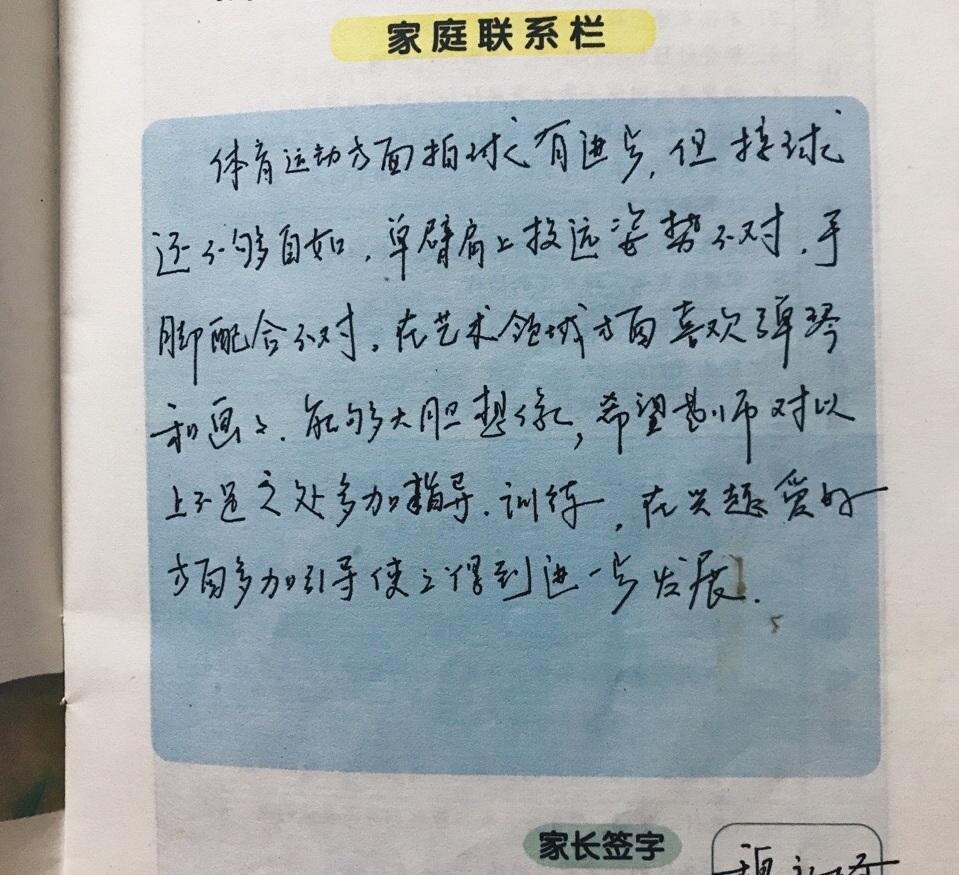 家庭联系栏
体育运动方面拍球有进步,但接球
还不够自如,单臂肩上投远姿势不对,手
脚配合不对。在艺术领域方面喜欢弹琴
和画画、能够大胆想像,希望教师对以
上不足之处多加指导、训练,在兴趣爱好
方面多加引导使之得到进一步发展.
家长签字